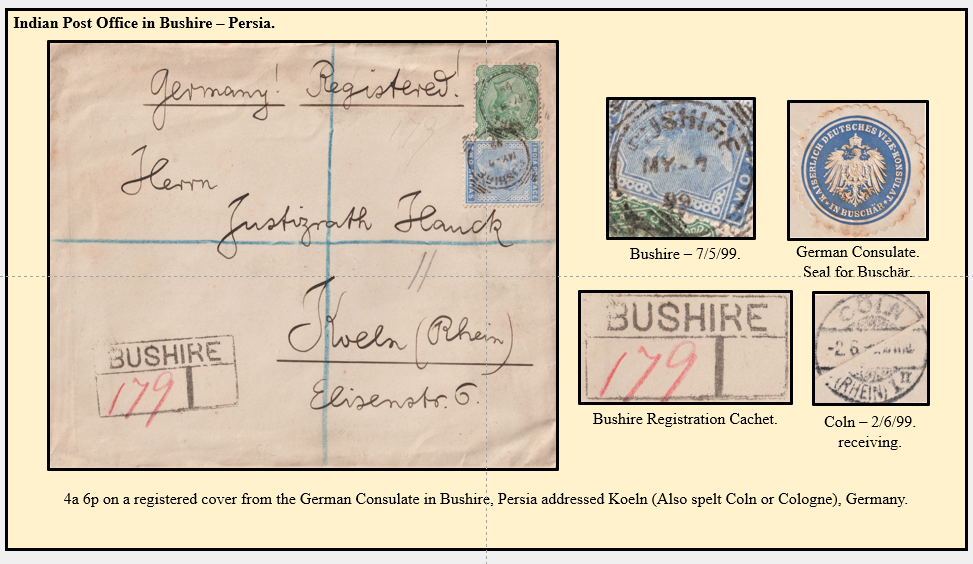 Indian Post Office in Bushire – Persia.
Germany! Registered!
Herrn
Justizrath Hauck
Koeln (Rhein)
Elisenstr. 6.
BUSHIRE
179
BUSHIRE
MY-7
99
Bushire – 7/5/99.
KAISERLICH DEUTSCHES VIZE-KONSULAT
IN BUSCHÄR
German Consulate.
Seal for Buschär.
BUSHIRE
179
Bushire Registration Cachet.
CÖLN
-2.6
(RHEIN) 1 II
Coln – 2/6/99.
receiving.
4a 6p on a registered cover from the German Consulate in Bushire, Persia addressed Koeln (Also spelt Coln or Cologne), Germany.